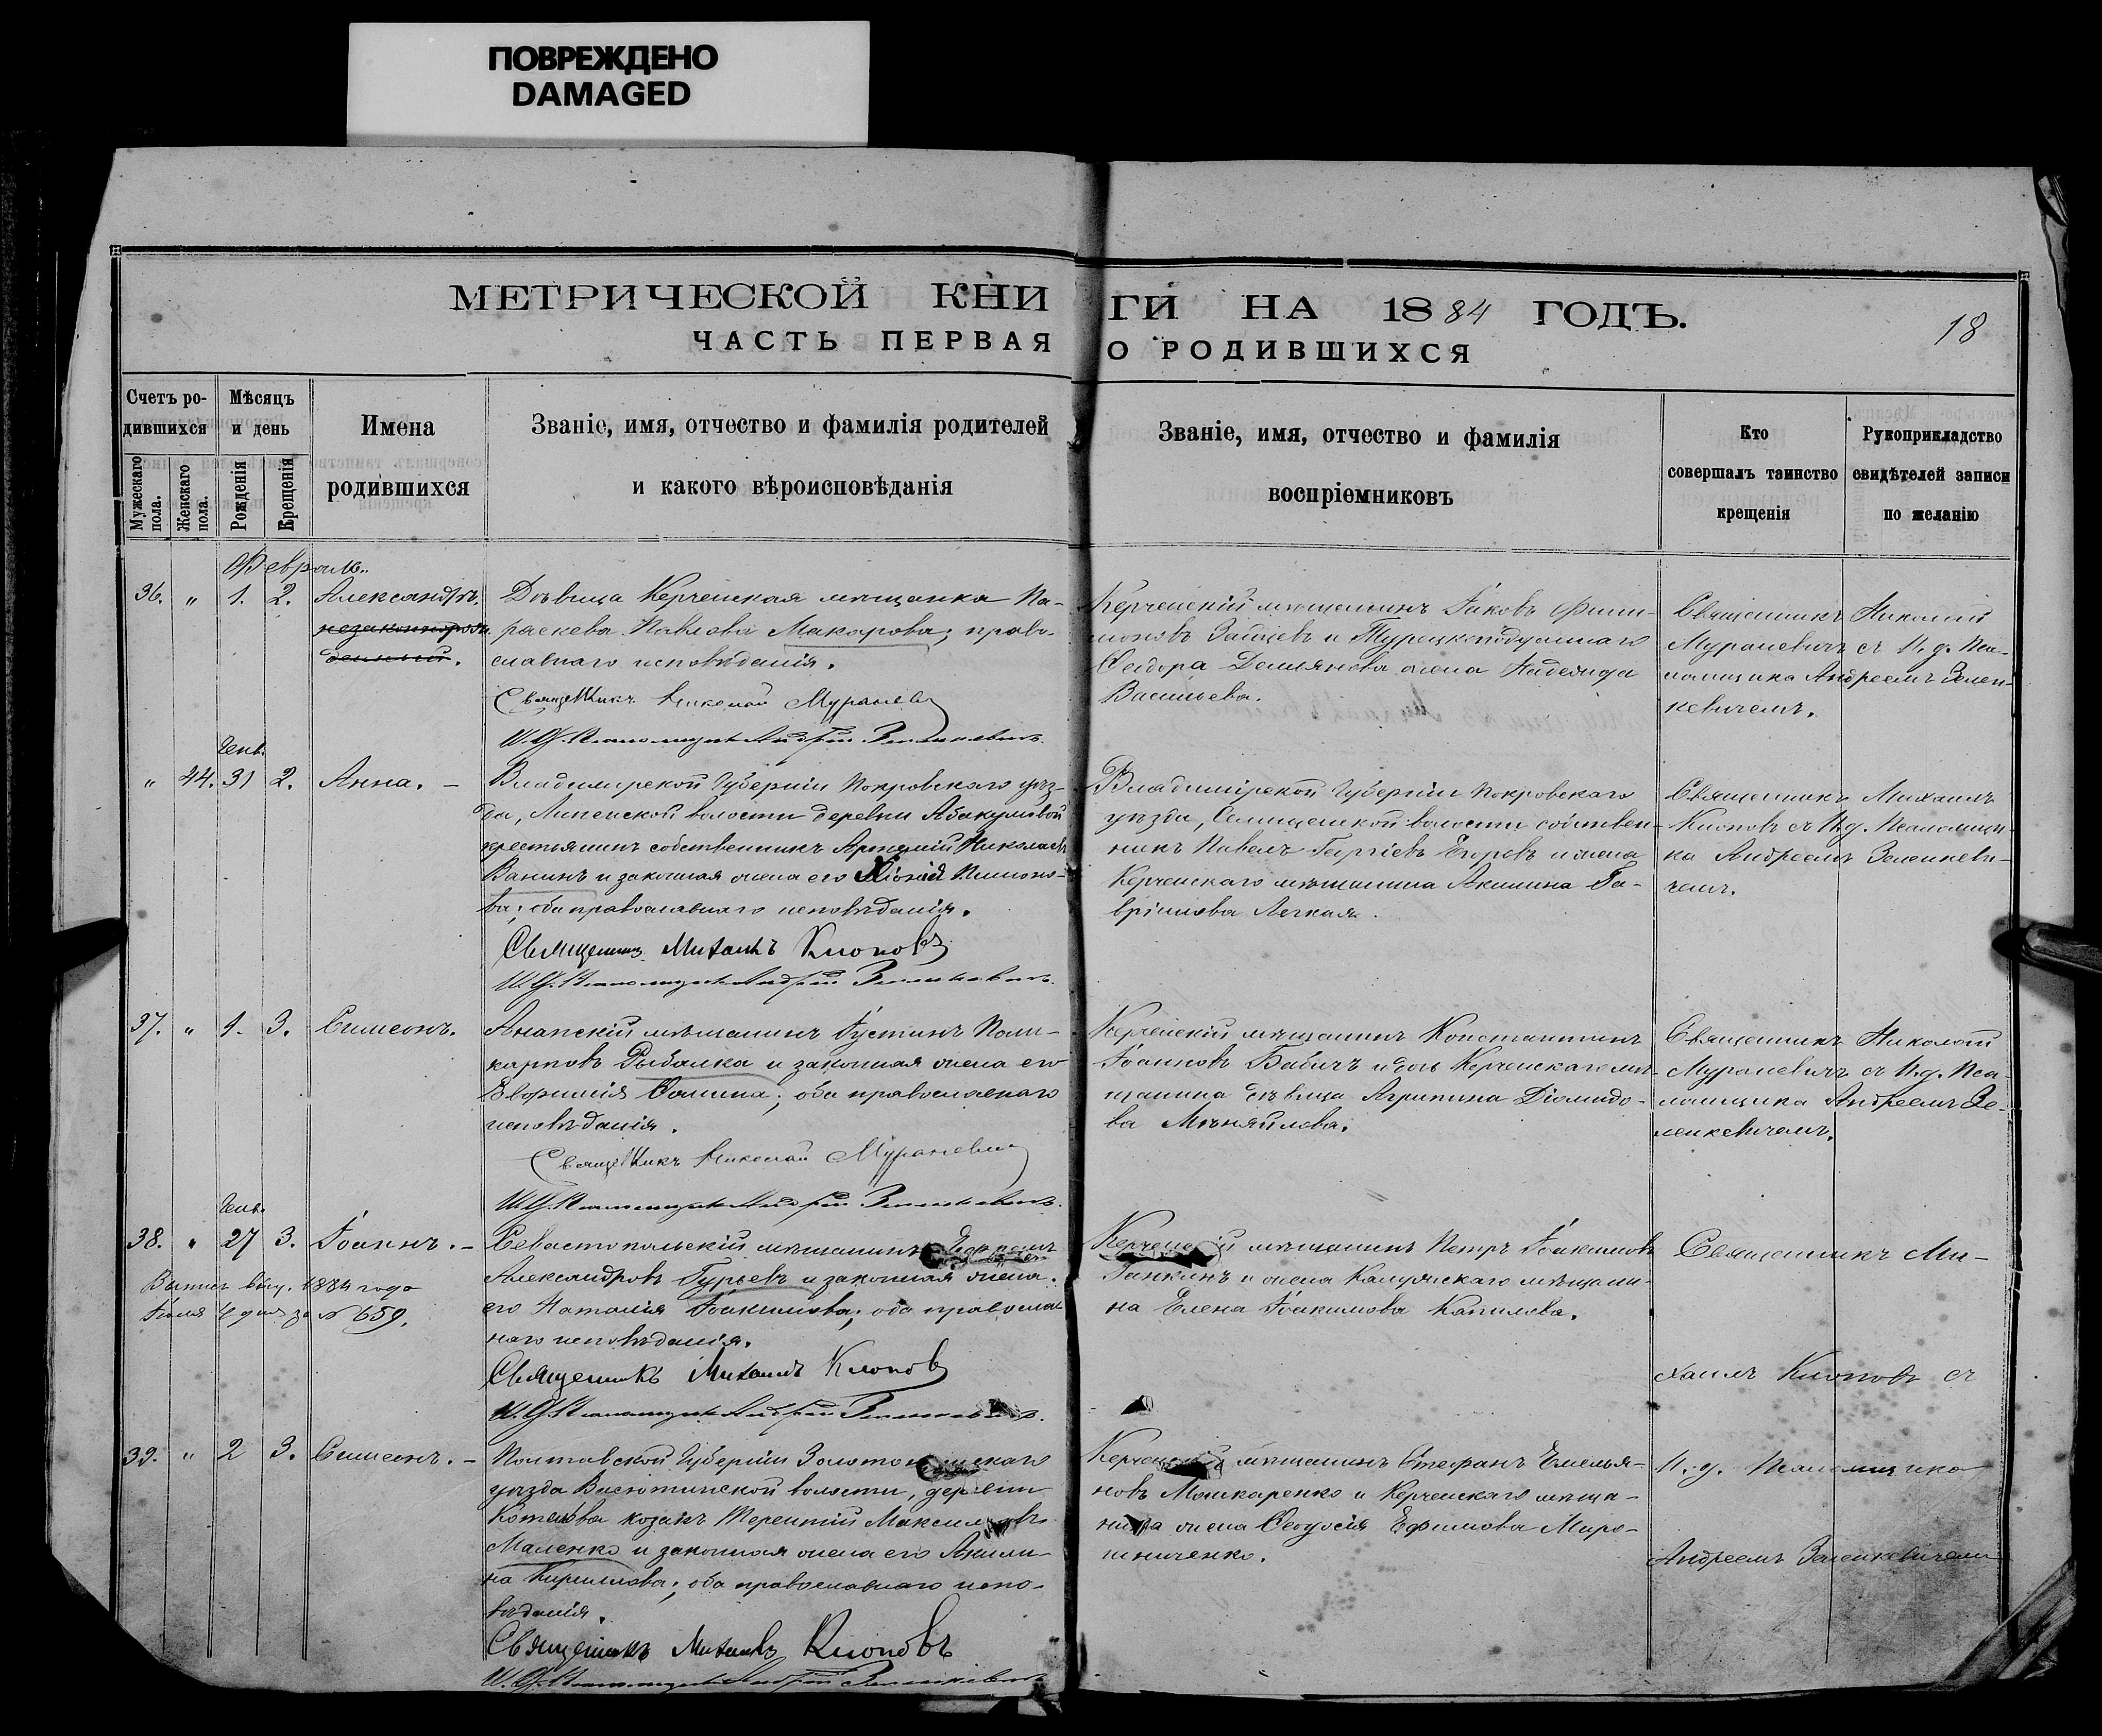 ПОВРЕЖДЕНО
DAMAGED
МЕТРИЧЕСКОЙ КНИ ГИ НА 1884 ГОДЪ.
ЧАСТЬ ПЕРВАЯ О РОДИВШИХСЯ
18
Счетъ ро-
дившихся
Мужескаго пола.
Женскаго пола.
Мѣсяцъ
и день
Рожденія
Крещенія
Имена
родившихся
Званіе, имя, отчество и фамилія родителей
и какого вѣроисповѣданія
Званіе, имя, отчество и фамилія
воспріемниковъ
Кто
совершалъ таинство
крещенія
Рукоприкладство
свидѣтелей записи
по желанію
Февраль.
36. " 1. 2. Александръ.
незаконнорож
денный.
Дѣвица Керченская мѣщанка Па-
раскева Павлова Макарова; право-
славнаго исповѣданія.
Священникъ Николай Мураневичъ
И. д. Псаломщика Андрей Зеленкевичъ.
Керченскій мѣщанинъ Іаковъ Фили-
моновъ Зайцевъ и Турецкоподданнаго
Сидора Демьянова жена Надежда
Васильева.
Священникъ Николай
Мураневичъ съ И. д. Пса-
ломщика Андреемъ Зелен-
кевичемъ.
Генв.
" 44. 31 2. Анна. —
Владимірской Губерніи Покровскаго уѣз-
да, Липенской волости деревни Абакумовой
крестьянинъ собственникъ Артемій Николаевъ
Ванинъ и законная жена его Хіонія Пимоно-
ва; оба православнаго исповѣданія.
Священникъ Михаилъ Клоповъ
И. д. Псаломщика Андрей Зеленкевичъ.
Владимірской Губерніи Покровскаго
уѣзда, Селищенской волости собствен-
никъ Павелъ Георгіевъ Егоровъ и жена
Керченскаго мѣщанина Акилина Га-
вріилова Легкая.
Священникъ Михаилъ
Клоповъ съ И. д. Псаломщи-
ка Андреемъ Зеленкеви-
чемъ.
37. " 1. 3. Симеонъ.
Анапскій мѣщанинъ Іустинъ Поли-
карповъ Рыбалка и законная жена его
Евфимія Фомина; оба православнаго
исповѣданія.
Священникъ Николай Мураневичъ
И. д. Псаломщика Андрей Зеленкевичъ.
Керченскій мѣщанинъ Константинъ
Іоанновъ Бабичъ и дочь Керченскаго мѣ-
щанина дѣвица Агрипина Діомидо-
ва Мѣняйлова.
Священникъ Николай
Мураневичъ съ И. д. Пса-
ломщика Андреемъ Зе-
ленкевичемъ.
Генв.
38. " 27 3. Іоаннъ. —
Выпись выд. 1884 года
за № 659.
Севастопольскій мѣщанинъ
Александровъ Гурьевъ и законная жена
его Наталія Іоакимова; оба православ
наго исповѣданія.
Священникъ Михаилъ Клоповъ
И. д. Псаломщика Андрей Зеленкевичъ.
Керченскій мѣщанинъ Петръ Іоакимовъ
Ганкинъ и жена Калужскаго мѣщани-
на Елена Іоакимова Капилова.
Священникъ Ми-
хаилъ Клоповъ съ
39. " 2 3. Симеонъ. —
Полтавской Губерніи Золотоношскаго
уѣзда Васютинской волости, деревни
козакъ Терентій Максимовъ
Маленко и законная жена его Акили-
на Кирилова; оба православнаго испо-
вѣданія.
Священникъ Михаилъ Клоповъ
И. д. Псаломщика Андрей Зеленкевичъ
Керченскій мѣщанинъ Стефанъ Емелья-
новъ Мошкаренко и Керченскаго мѣща-
нина жена Феодосія Ефимова Миро-
шниченко.
И. д. Псаломщика
Андреемъ Зеленкевичемъ